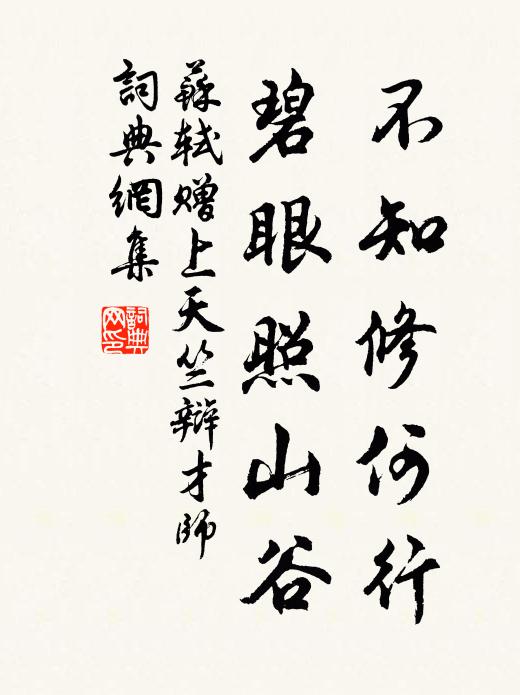 不知修何行
碧眼照山谷
蘇軾赠上天竺辯才師
詞典網集
詞典
网印